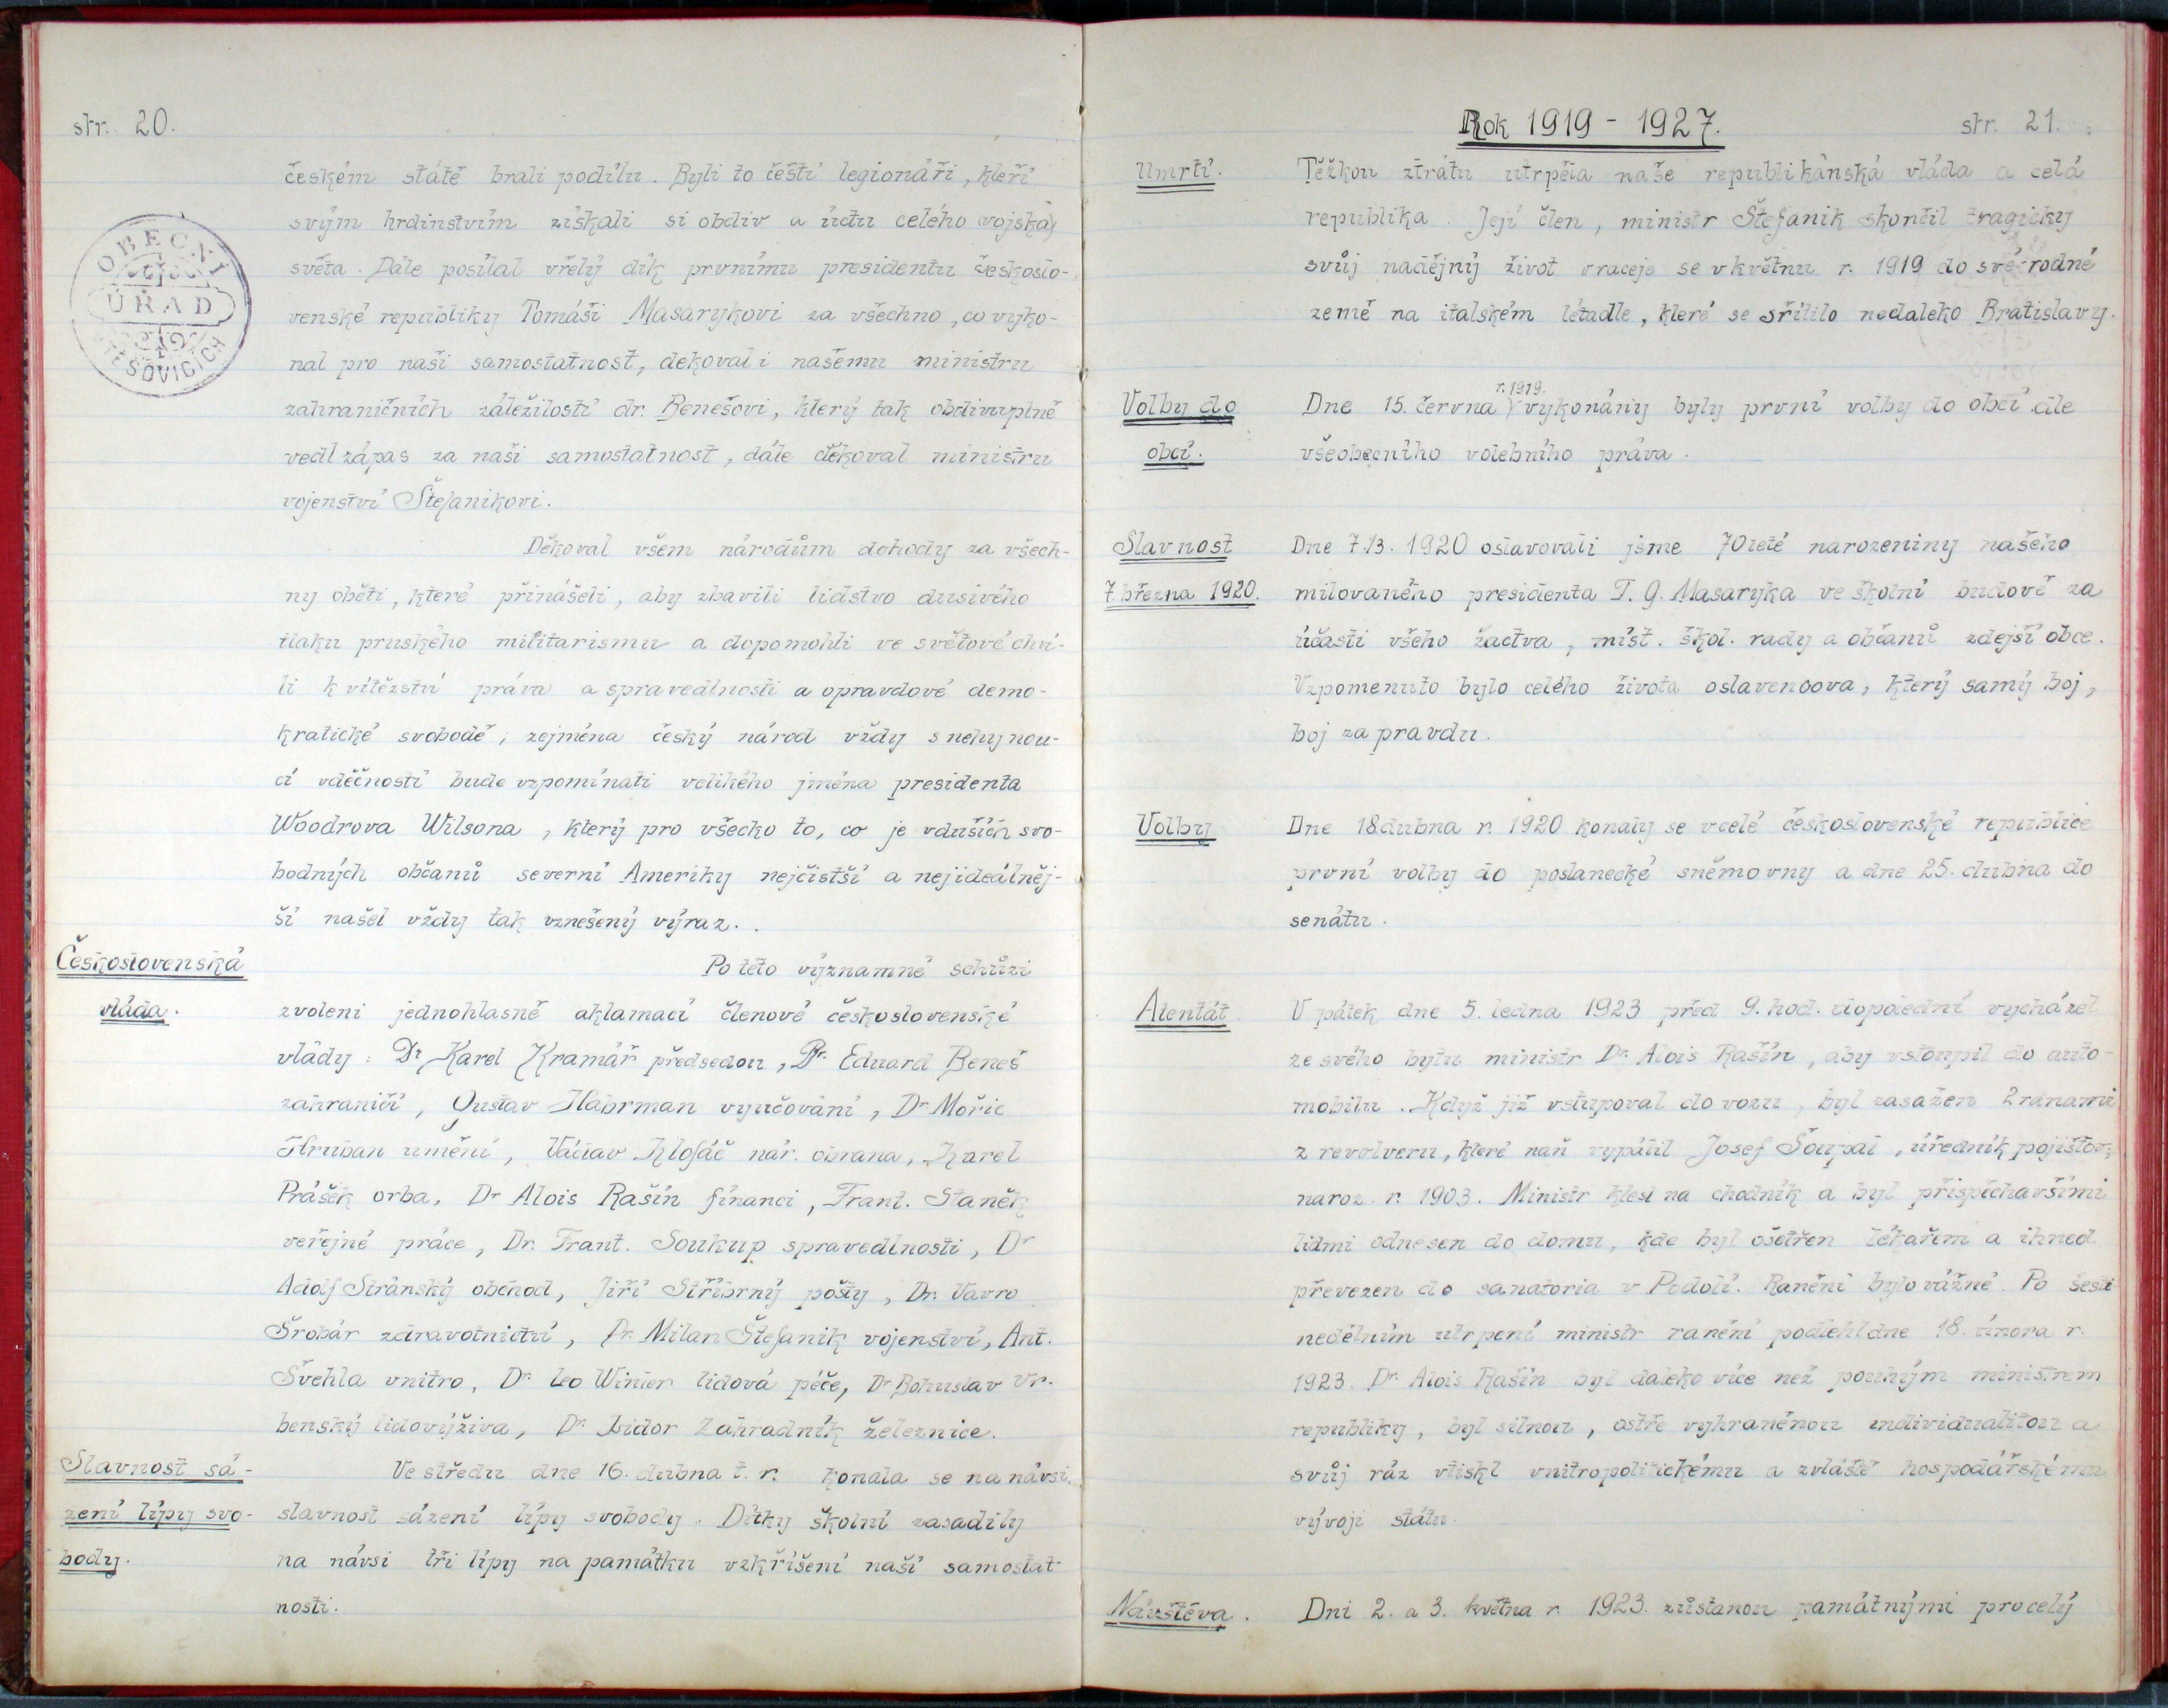 str. 20.
českém státě brali podílu. Byli to čeští legionáři, kteří
svým hrdinstvím získali si obdiv a úctu celého (vojska)
světa. Dále posílal vřelý dík prvnímu presidentu českoslo-
venské republiky Tomáši Masarykovi za všechno, co vyko-
nal pro naši samostatnost, dekoval i našemu ministru
zahraničních záležitostí dr. Benešovi, který tak obdivuplně
vedl zápas za naši samostatnost, dále děkoval ministru
vojenství Štefanikovi.
Děkoval všem národům dohody za všech-
ny oběti, které přinášeli, aby zbavili lidstvo dusivého
tlaku pruského militarismu a dopomohli ve světové chví-
li k vítězství práva a spravedlnosti a opravdové demo-
kratické svobodě, zejména český národ vždy s nehynou-
cí vděčností bude vzpomínati velikého jména presidenta
Woodrova Wilsona, který pro všecko to, co je v duších svo-
bodných občanů severní Ameriky nejčistší a nejideálněj-
ší našel vždy tak vznešený výraz.
Československá
vláda.
Po této významné schůzi
zvoleni jednohlasně aklamací členové československé
vlády: Dr Karel Kramář předsedou, Dr. Eduard Beneš
zahraničí, Gustav Habrman vyučování, Dr Mořic
Hruban umění, Václav Klofáč nár. obrana, Karel
Prášek orba, Dr Alois Rašín financí, Frant. Staněk
veřejné práce, Dr. Frant. Soukup spravedlnosti, Dr
Adolf Stránský obchod, Jiří Stříbrný pošty, Dr. Vavro
Šrobár zdravotnictví, Dr. Milan Štefanik vojenství, Ant.
Švehla vnitro, Dr Leo Winter lidová péče, Dr Bohuslav Vr-
benský lidovýživa, Dr Isidor Zahradník železnice.
Slavnost sá-
zení lípy svo-
body.
Ve středu dne 16. dubna t. r. konala se na návsi
slavnost sázení lípy svobody. Dítky školní zasadily
na návsi tři lípy na památku vzkříšení naší samostat-
nosti.
OBECNÍ
ÚŘAD
Rok 1919 - 1927.
str. 21.
Úmrtí.
Těžkou ztrátu utrpěla naše republikánská vláda a celá
republika. Její člen, ministr Štefanik skončil tragicky
svůj nadějný život vraceje se v květnu r. 1919 do své rodné
země na italském létadle, které se sřítilo nedaleko Bratislavy.
Volby do
obcí.
Dne 15. června r. 1919. vykonány byly první volby do obcí dle
všeobecního volebního práva.
Slavnost
7 března 1920.
Dne 7./3. 1920 oslavovali jsme 70leté narozeniny našeho
milovaného presidenta T. G. Masaryka ve školní budově za
účasti všeho žactva, míst. škol. rady a občanů zdejší obce.
Vzpomenuto bylo celého života oslavencova, který samý boj,
boj za pravdu.
Volby
Dne 18.dubna r. 1920 konaly se v celé československé republice
první volby do poslanecké sněmovny a dne 25. dubna do
senátu.
Atentát
V pátek dne 5. ledna 1923 před 9. hod. dopolední vycházel
ze svého bytu ministr Dr. Alois Rašín, aby vstoupil do auto-
mobilu. Když již vstupoval do vozu, byl zasažen 2 ranami
z revolveru, které naň vypálil Josef Šoupal, úředník pojišťov.,
naroz. r. 1903. Ministr klesl na chodník a byl přispěchavšími
lidmi odnesen do domu, kde byl ošetřen lékařem a ihned
převezen do sanatoria v Podolí. Ranění bylo vážné. Po šesti
nedělním utrpení ministr ranění podlehl dne 18. února r.
1923. Dr. Alois Rašín byl daleko více než pouhým ministrem
republiky, byl silnou, ostře vyhraněnou individualitou a
svůj ráz vtiskl vnitropolitickému a zvláště hospodářskému
vývoji státu.
Návštěva.
Dni 2. a 3. května r. 1923. zůstanou památnými pro celý